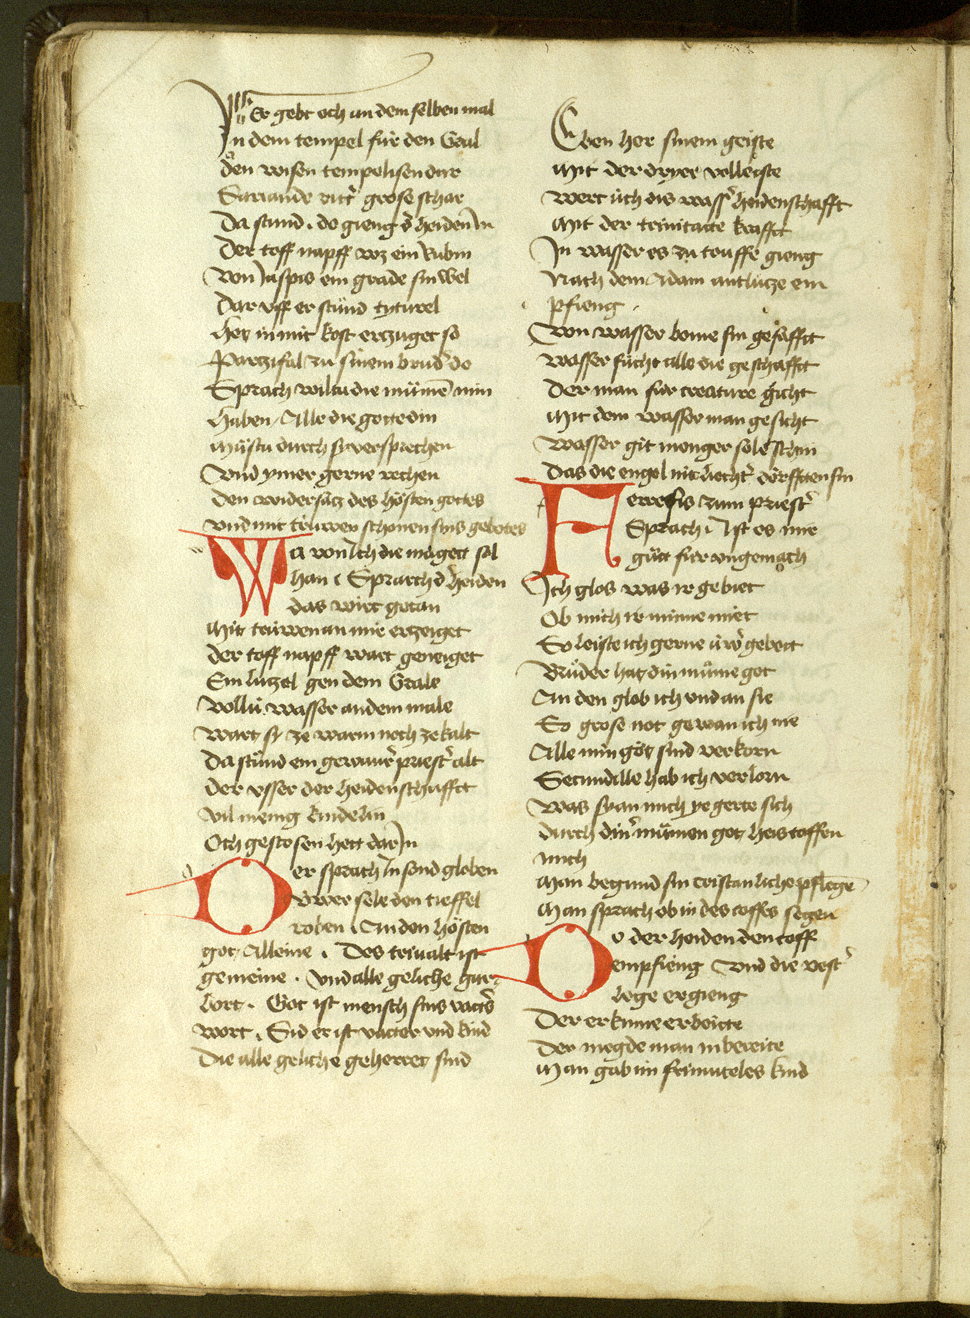 Er gebt och an dem selben mal
In dem tempel für den Gral
den wisen tempelisen dar
Sariande ritt' grose schar
Da stund · do gieng d' heiden In
Der toff napff wz ein Rubin
Von Jaspis ein grade sinwel
Dar vff er stünd tyturel
Het in mit kost erzuget so
Parzifal zu sinem brud' do
Sprach wiltu die müme min
Haben · Alle die gotte din
müstu durch sy versprechen
Vnd ymer gerne rechen
den widersatz des hösten gottes
vnd mit trüwen schonen sins gebotes
Wa von Ich die magett sol
han · Sprach d' heiden
das wirt getan
Mit trüwen an mir erzeiget
der toff napff wart geneiget
Ein lützel gen dem Grale
Vollü wasser an dem male
Wart sy ze warm noch ze kalt
Da stünd ein gerawr' priest' alt
der vsser der heidenschafft
Vil menig kindelin
Och gestosen hett dar In
Der sprach Ir sond globen
Vwer sele den tieffel
roben · An den hösten
got Alleine · Des triualt ist
gemeine · Vnd alle geliche gur
bort · Got ist mensch sins vatt's
wort · Sid er ist vatter vnd kind
Die alle geliche geherret sind
Eben her sinem geiste
Mit der dryer volleiste
Wert üch dis wass' heidenschafft
Mit der trinitatte krafft
In wasser es zu touffe gieng
Nach dem Adam antlütze em
pfieng ·
Von wasser bome sin gesafft
Wasser fücht alle die geschafft
Der man für creature gicht
Mit dem wasser man gesicht
Wasser git menger sele schin
Das die engel nit liecht' dörfften sin
Ferrefis zum priest'
Sprach · Ist es mir
gütt für vngemach
Ich glob was ir gebiet
Ob mich ir minne miet
So leiste ich gerne ürw' gebott
Brüder hat din müme got
An den glob ich vnd an sie
So grose not gewan ich nie
Alle min göt sind verkorn
Secundille hab ich verlorn
Was sy an mich ye gerte sich
durch din' mümen got heis toffen
mich
Man begund sin cristanliche pflegē
Man sprach ob in des toffes segen
Do der heiden den toff
empfieng Vnd die vest'
lege ergieng
Der er kume erbeitte
Der megde man in bereite
Man gab im frimuteles kind